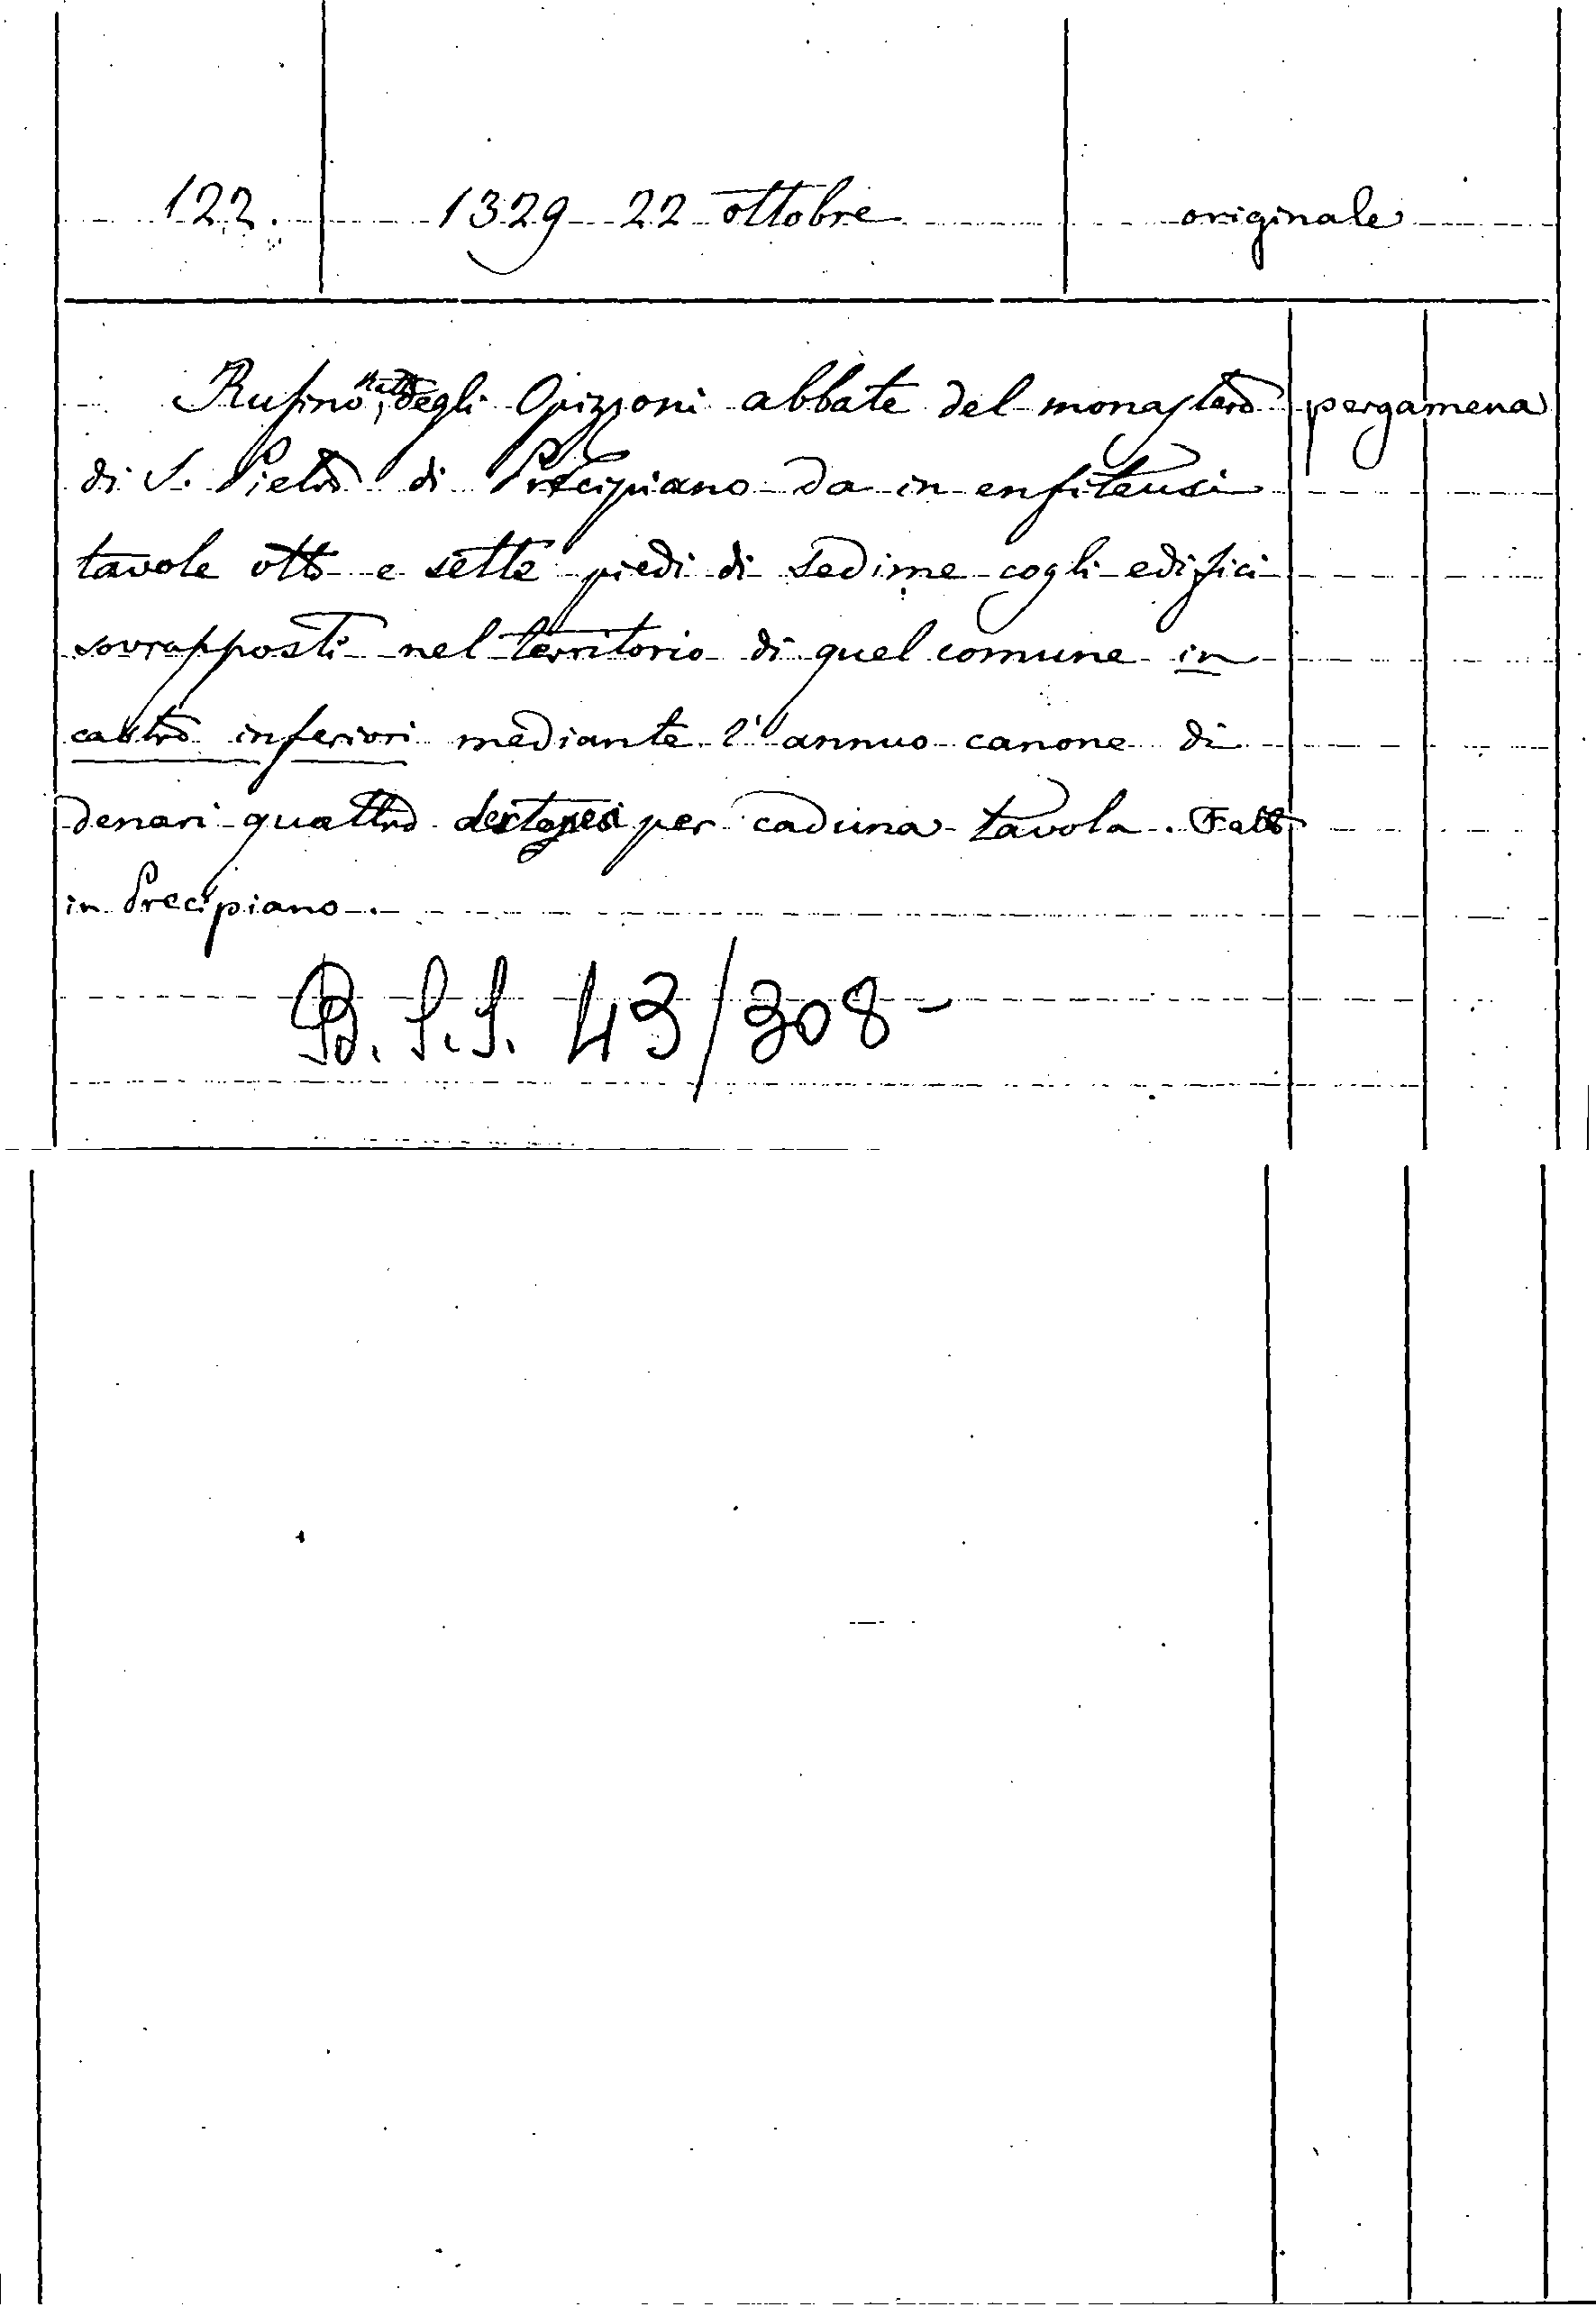 122. 1329 22 ottobre originale
Rufino degli Opizzoni abbate del monastero pergamena
di S. Pietro di Precipiano da in enfiteusi
tavole otto e sette piedi di sedime cogli edifici
sovrapposti nel territorio di quel comune in
castro inferiori mediante l'annuo canone di
denari quattro dertonesi per caduna tavola. Fatto
in Precipiano.
B. S. S. 43/308-